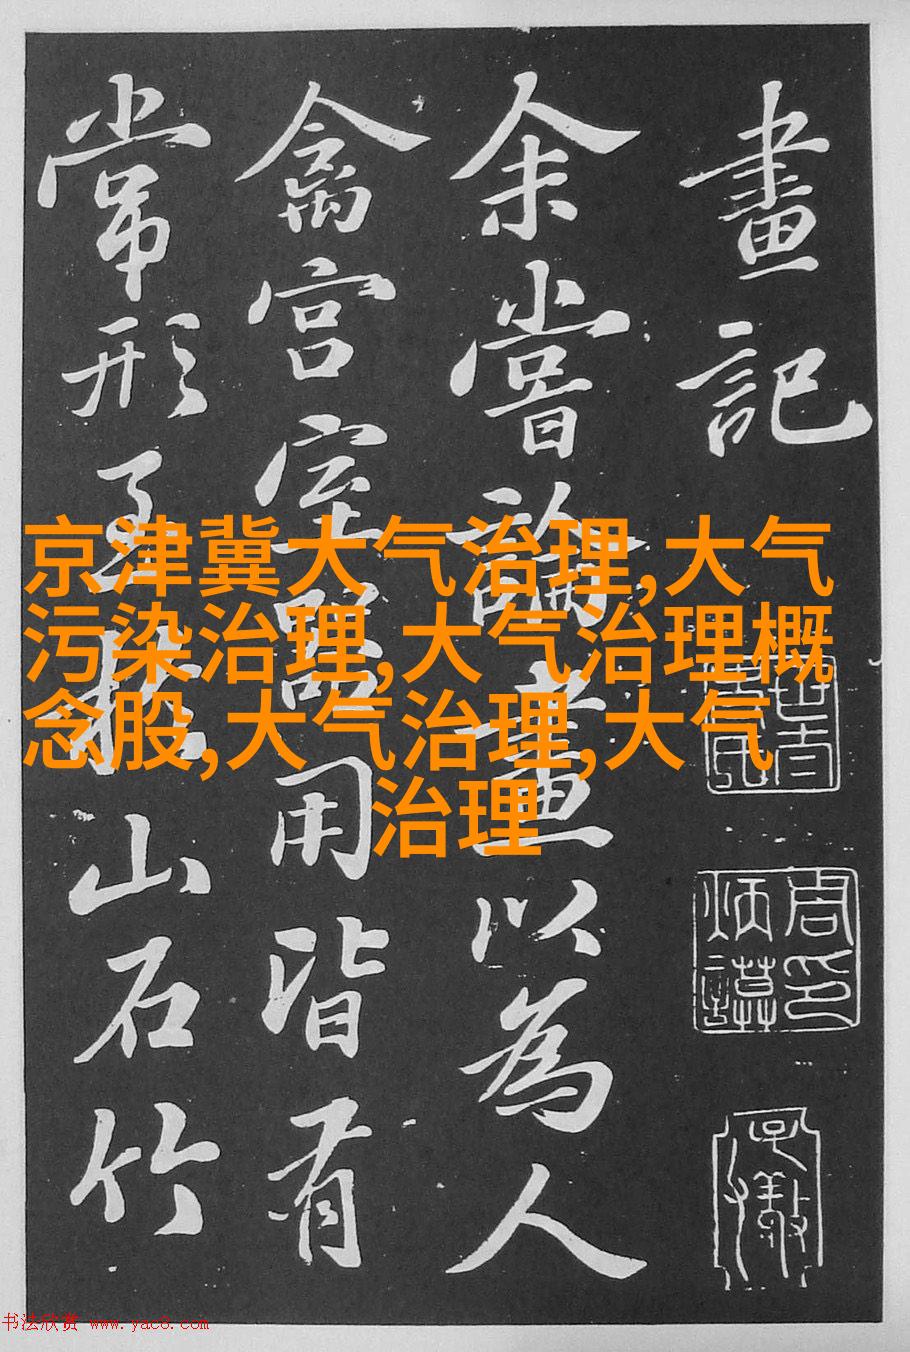 畫記
余嘗論畫以為人
禽宮室器用皆有
常形至於山石竹
周印炳謨
京津冀大气治理,大气
污染治理,大气治理概
念股,大气治理,大气
治理
书法欣赏 www.yac8.com